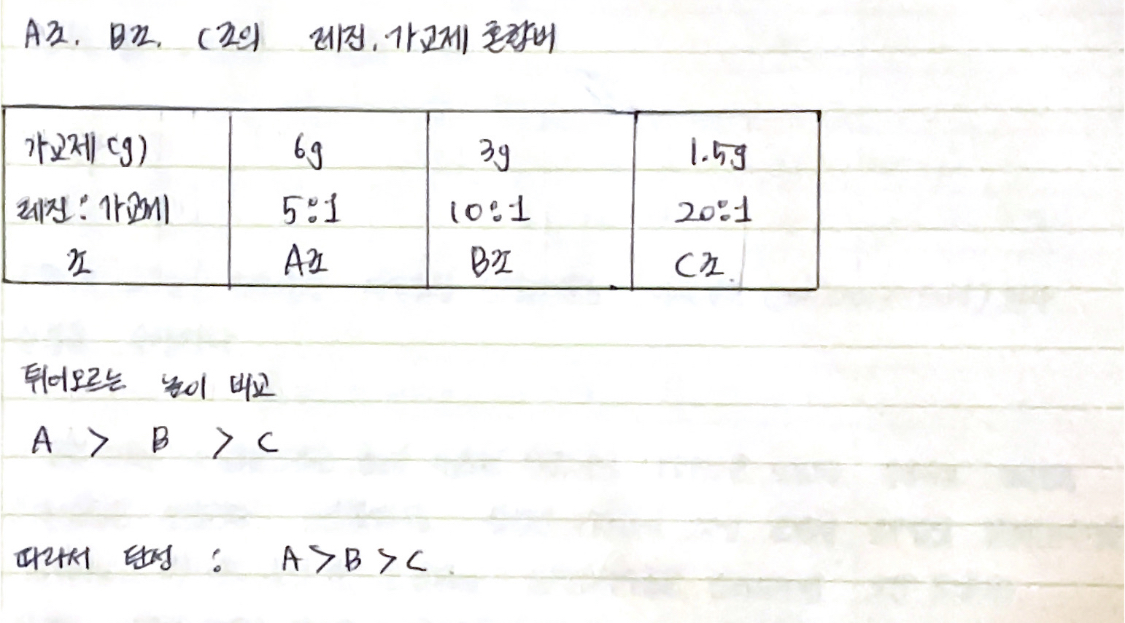 A조, B조, C조의 레진, 가교제 혼합비
가교제(g) 6g 3g 1.5g
레진:가교제 5:1 10:1 20:1
조 A조 B조 C조
튀어오르는 높이 비교
A > B > C
따라서 탄성 : A > B > C